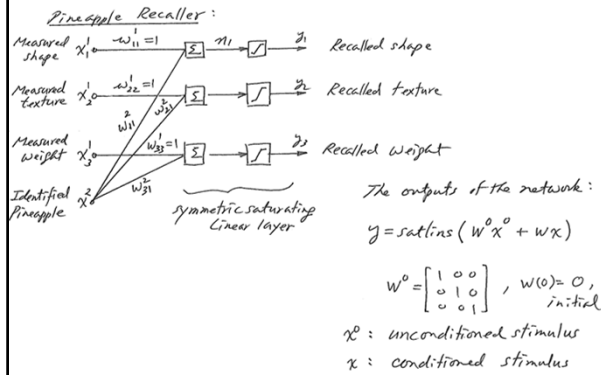 Pineapple Recaller:
Measured shape x₁¹ w₁₁¹=1 Σ n₁ y₁ Recalled shape
Measured texture x₂¹ w₂₂¹=1 Σ y₂ Recalled texture
w₁₁² w₂₁²
Measured weight x₃¹ w₃₃¹=1 Σ y₃ Recalled weight
w₃₁²
Identified Pineapple x²
symmetric saturating
Linear layer
The outputs of the network:
y = satlins (W⁰x⁰ + Wx)
W⁰ = [1 0 0
0 1 0
0 0 1] , W(0) = 0,
initial
x⁰ : unconditioned stimulus
x : conditioned stimulus